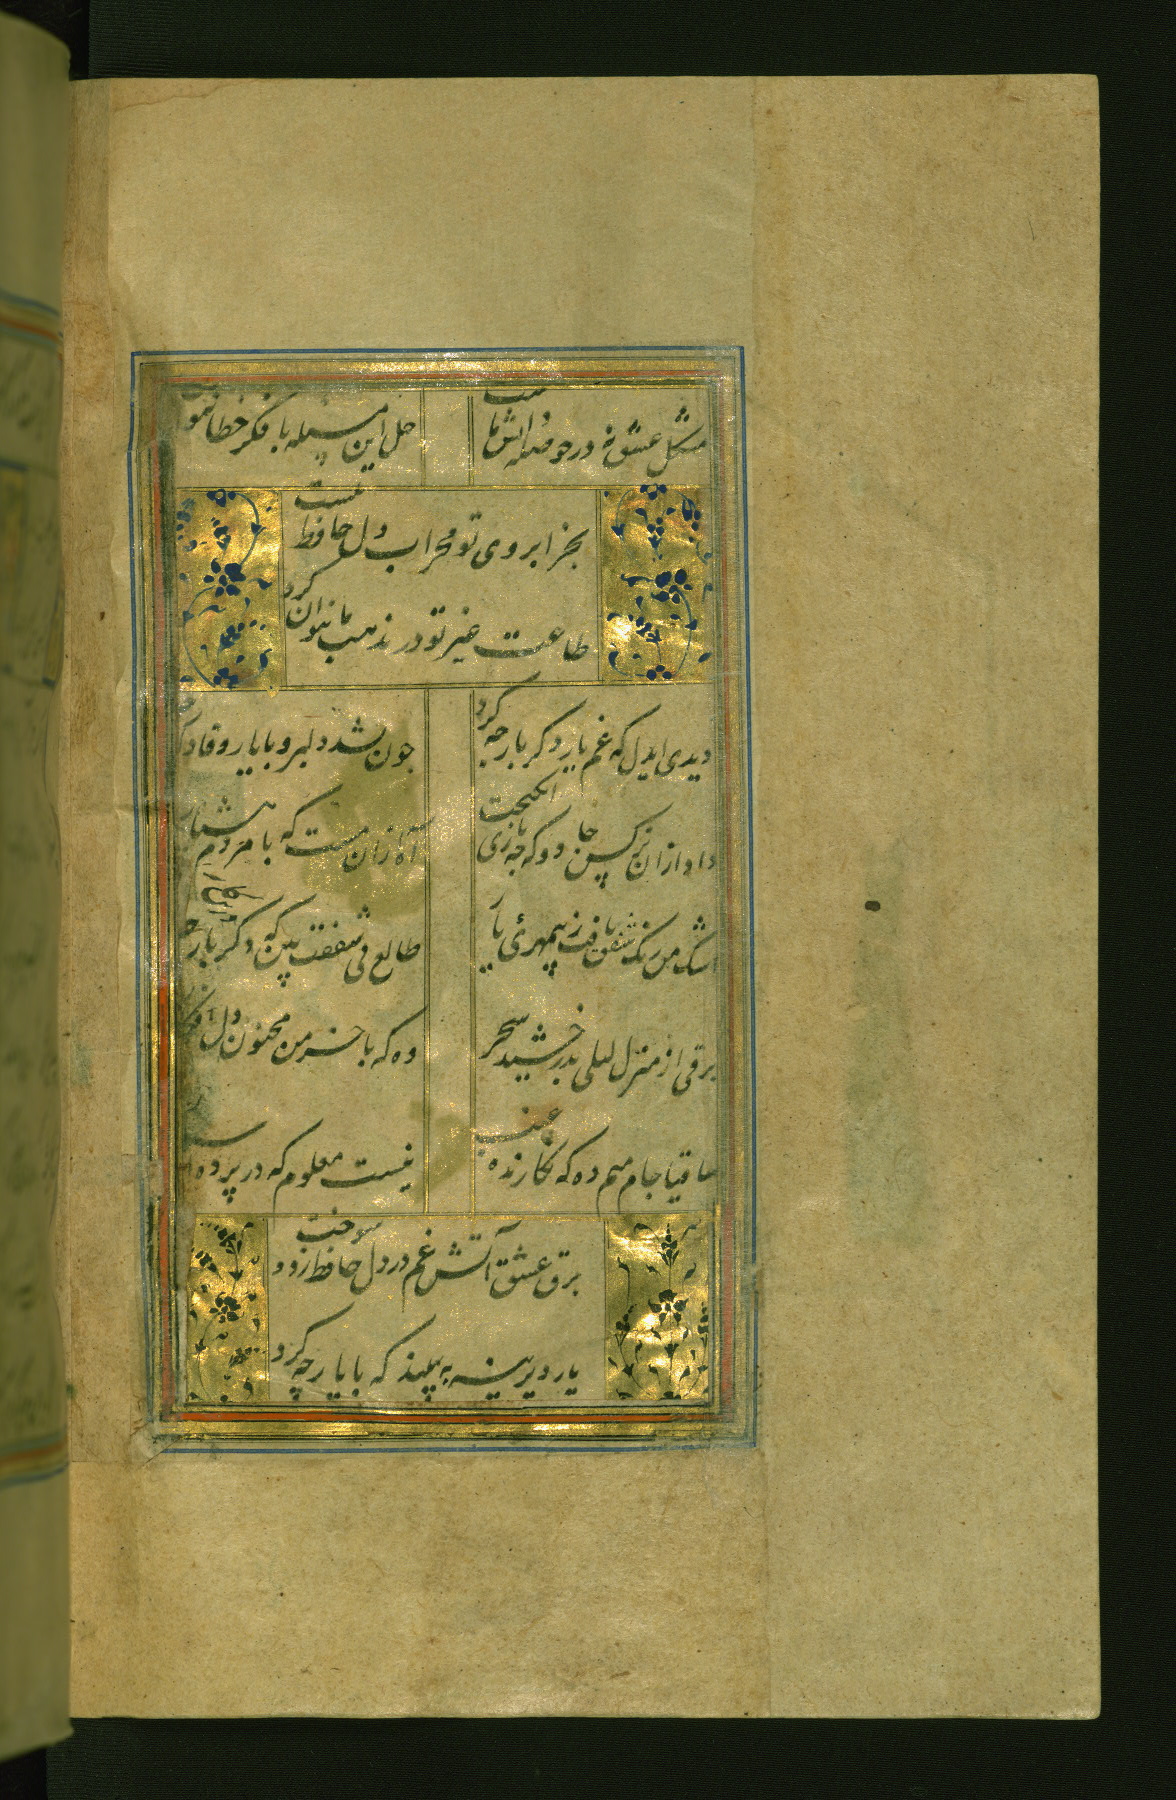 مشکل عشق نه در حوصله دانش ماست
حل این مسیله با فکر خطا نتوان
بجز ابروی تو محراب دل حافظ نیست
طاعت غیر تو در مذهب ما نتوان کرد
دیدی ایدل که غم یار دکر بار جه کرد
جون بشد دلبر و با یار وفادار
داد ازان نرکس جادو که جه بازی انکیخت
آه ازان مست که با مردم هشیار
اشک من رنک شفق یافت ز بیمهرئ یار
طالع بی شفقت بین که دکر بار چه
برقی از منزل لیلی بدرخشید سحر
وه که با خرمن مجنون دل افکار
ساقیا جام میم ده که نکارنده غیب
نیست معلوم که در پرده
برق عشق آتش غم در دل حافظ زد و سوخت
یار دیرینه به بینید که با یار چه کرد